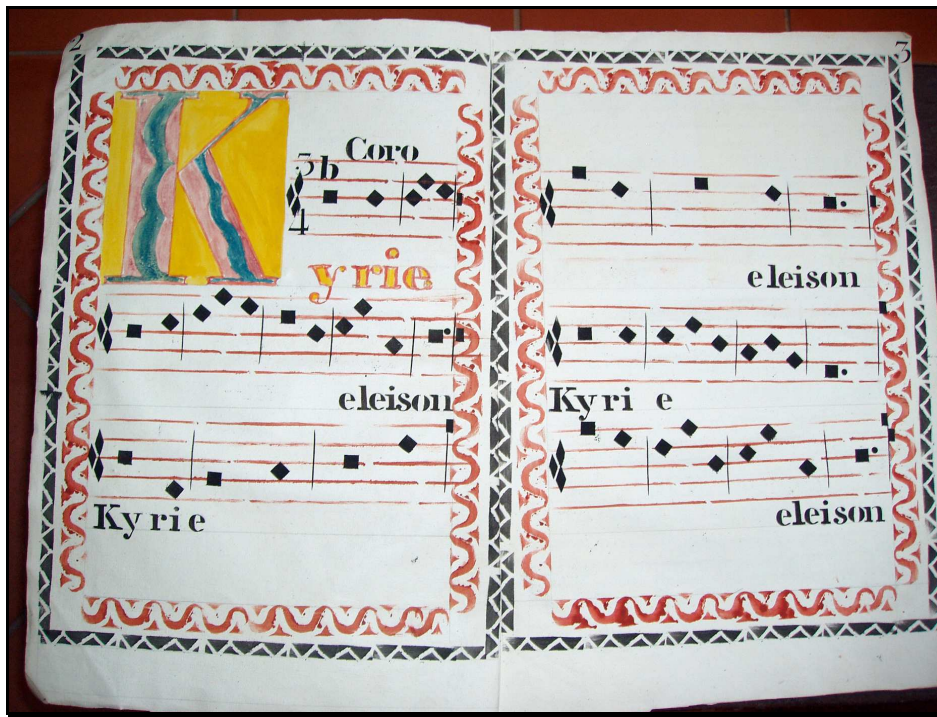 2
Coro
3 b
4
Kyrie
eleison
Kyrie
3
eleison
Kyrie
eleison